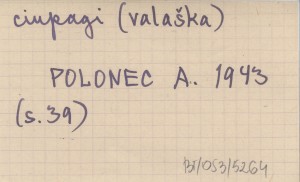 ciupagi (valaška)
POLONEC A. 1943
(s.39)
BI/OS3/5264